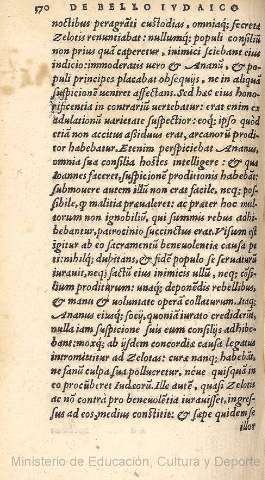 570 DE BELLO IVDAICO
noctibus peragrāti custodias, omniaq; secreta
Zelotis renuntiabat: nullumq; populi consiliū
non prius quā caperetur, inimici sciebant eius
indicio: immoderatis uero & Ananū, & po
puli principes placabat obsequijs, ne in aliquā
suspicionē ueniret affectans. Sed hæc eius hono
rificentia in contrariū uertebatur: erat enim ex
adulationū uarietate suspectior: eoq; ipso quòd
etiā non accitus assiduus erat, arcanorū prodi
tor habebatur. Etenim perspiciebat Ananus,
omnia sua consilia hostes intelligere: & quæ
Ioannes faceret, suspicionē proditionis habebāt:
submouere autem illū non erat facile, neq; pos-
sibile, q̃ malitia præualeret: ac præter hoc mul
torum non ignobiliū, qui summis rebus adhi
bebantur, patrocinio succinctus erat. Visum est
igitur ab eo sacramentū beneuolentiæ causa pe
ti: nihilq; dubitans, & fidē populo se seruaturū
iurauit, neq; factū eius inimicis ullū, neq; cōsi-
lium proditurum: unàq; deponēdis rebellibus,
& manu & uoluntate operā collaturum. Itaq;
Ananus eiusq; socij, quoniā iurato crediderāt,
nulla iam suspicione suis eum consilijs adhibe-
bant: moxq; ab ijsdem concordiæ causa legatus
intromittitur ad Zelotas: cura nanq; habebāt,
ne fanū culpa sua pollueretur, néue quisquā in
eo procūberet Iudæorū. Ille autē, quasi Zelotis
ac nō contrà pro beneuolētia iurauisset, ingres-
sus ad eos, medius constitit: & sæpe quidem se
illor
Ministerio de Educación, Cultura y Deporte